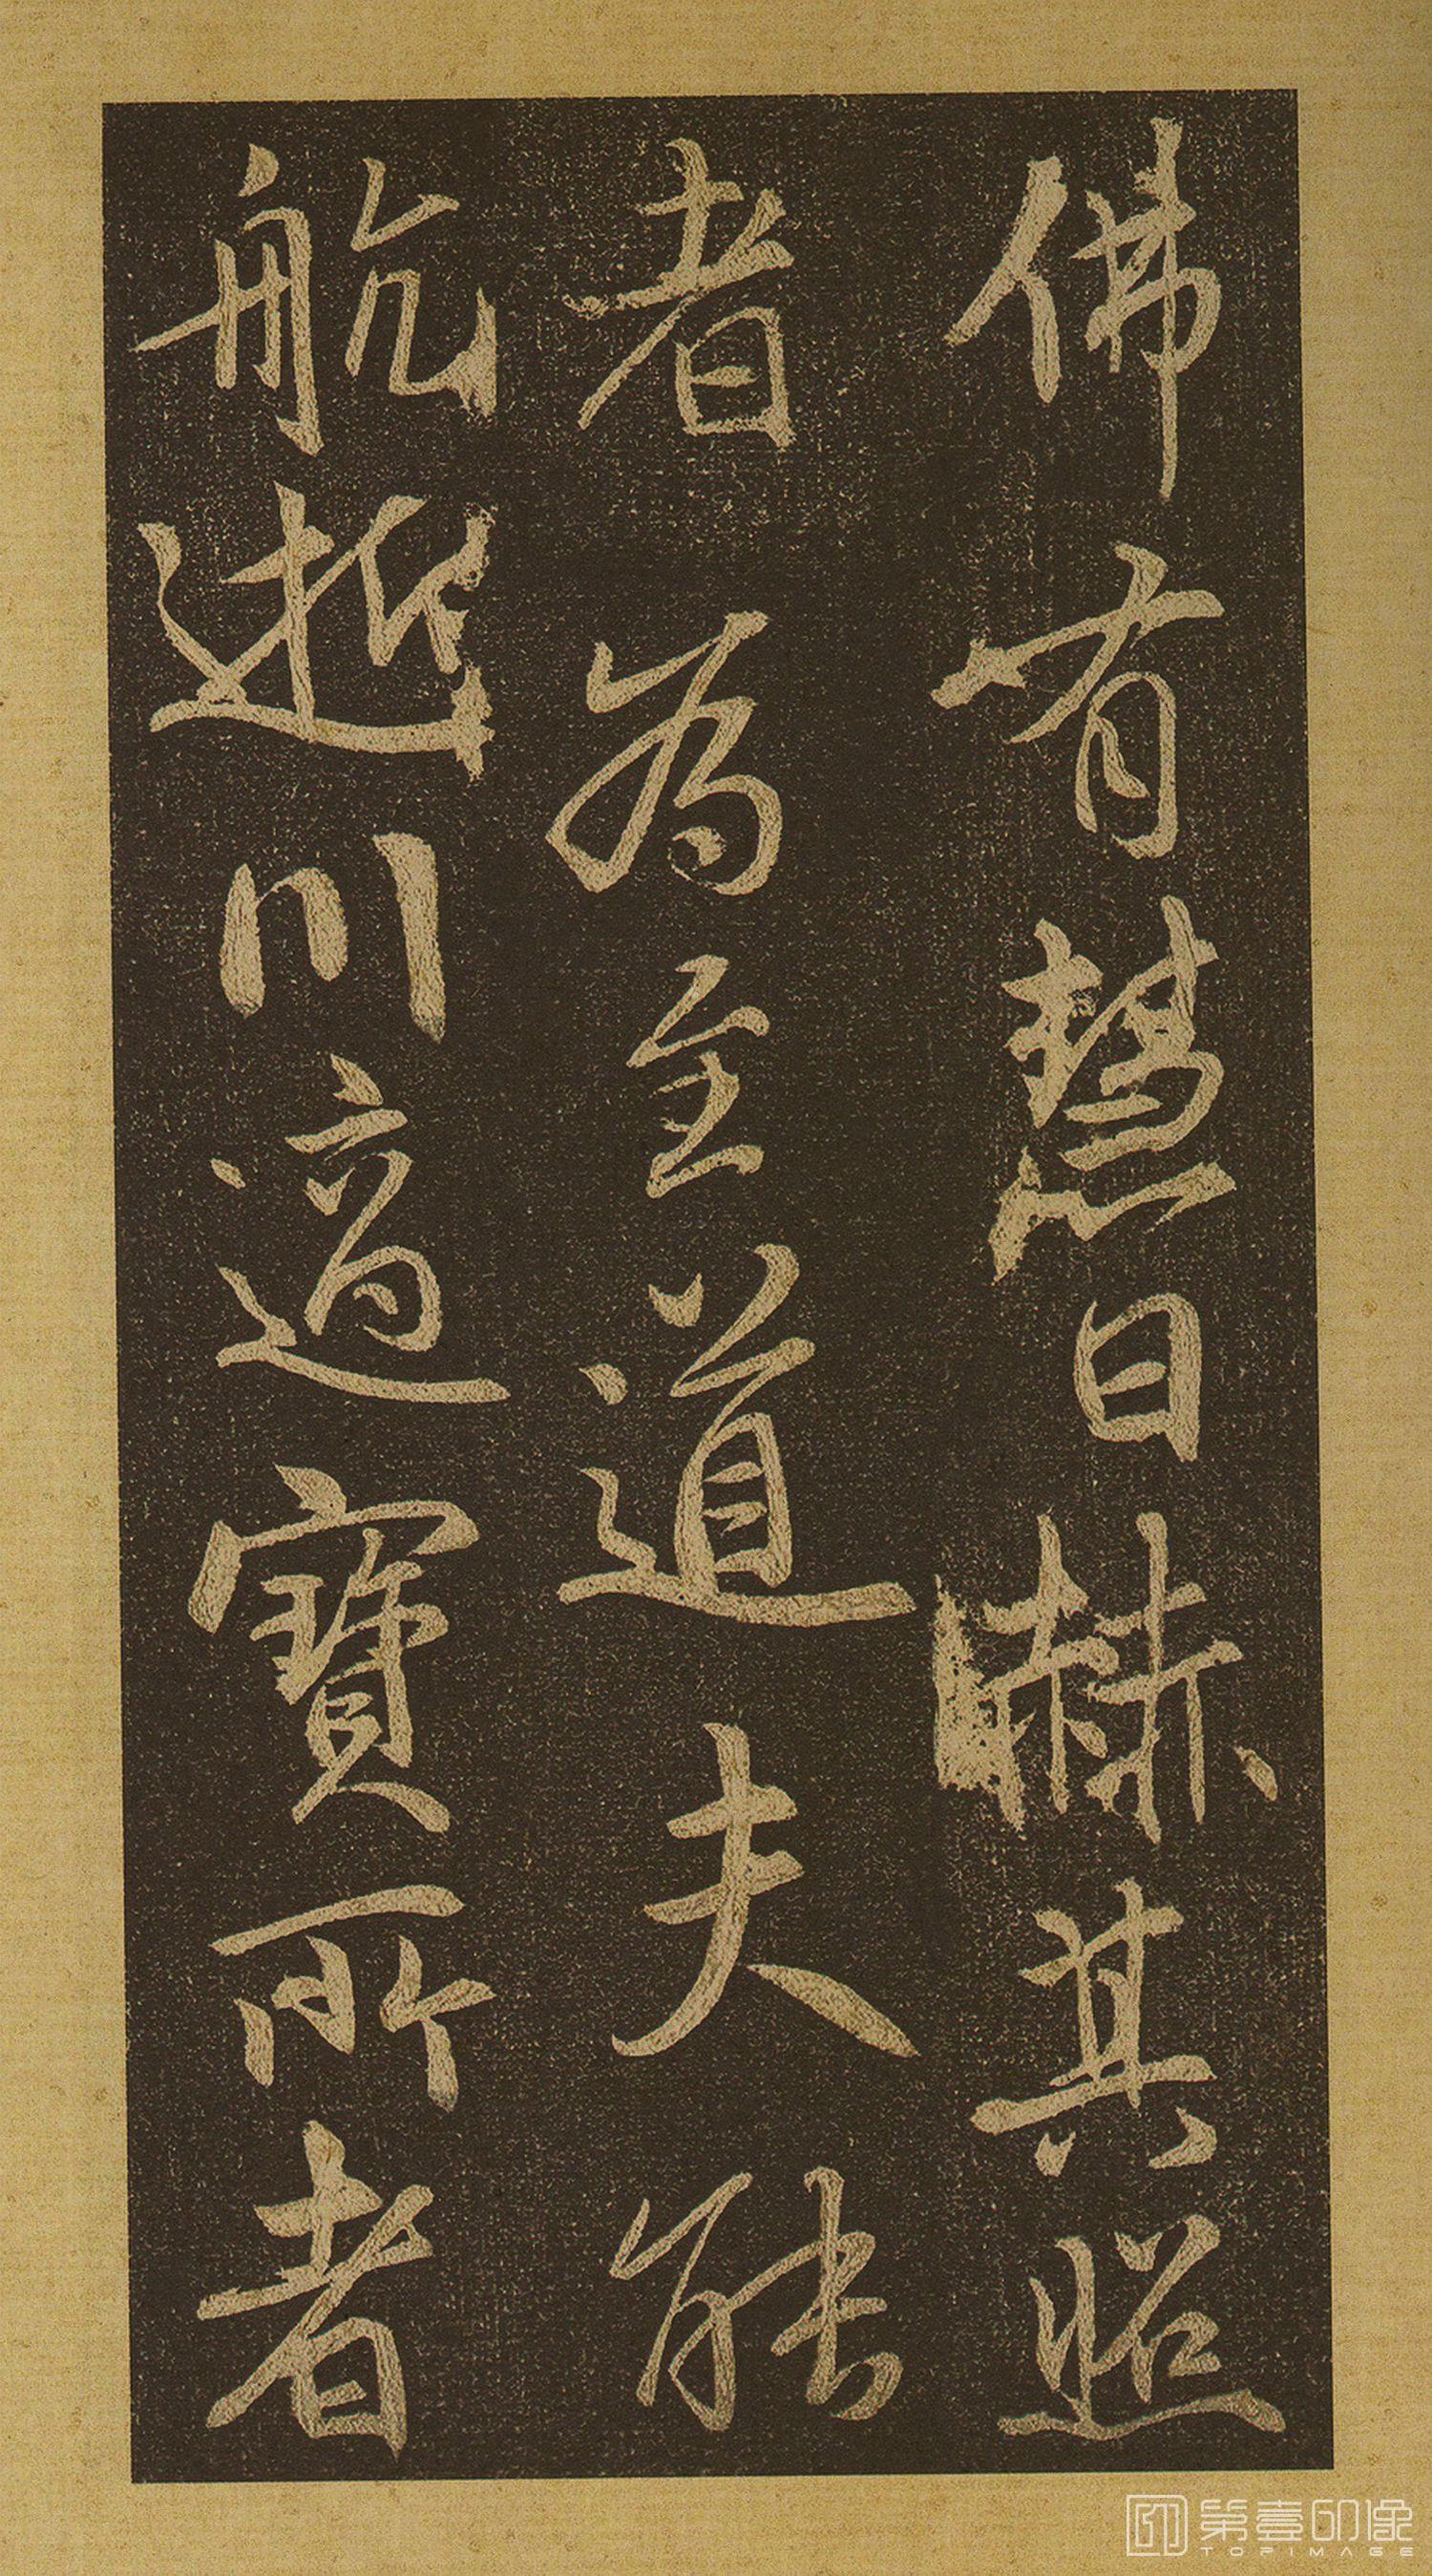 佛有慧日赫其照
者為至道夫能
航逝川適寶所者
第壹印像
TOPIMAGE